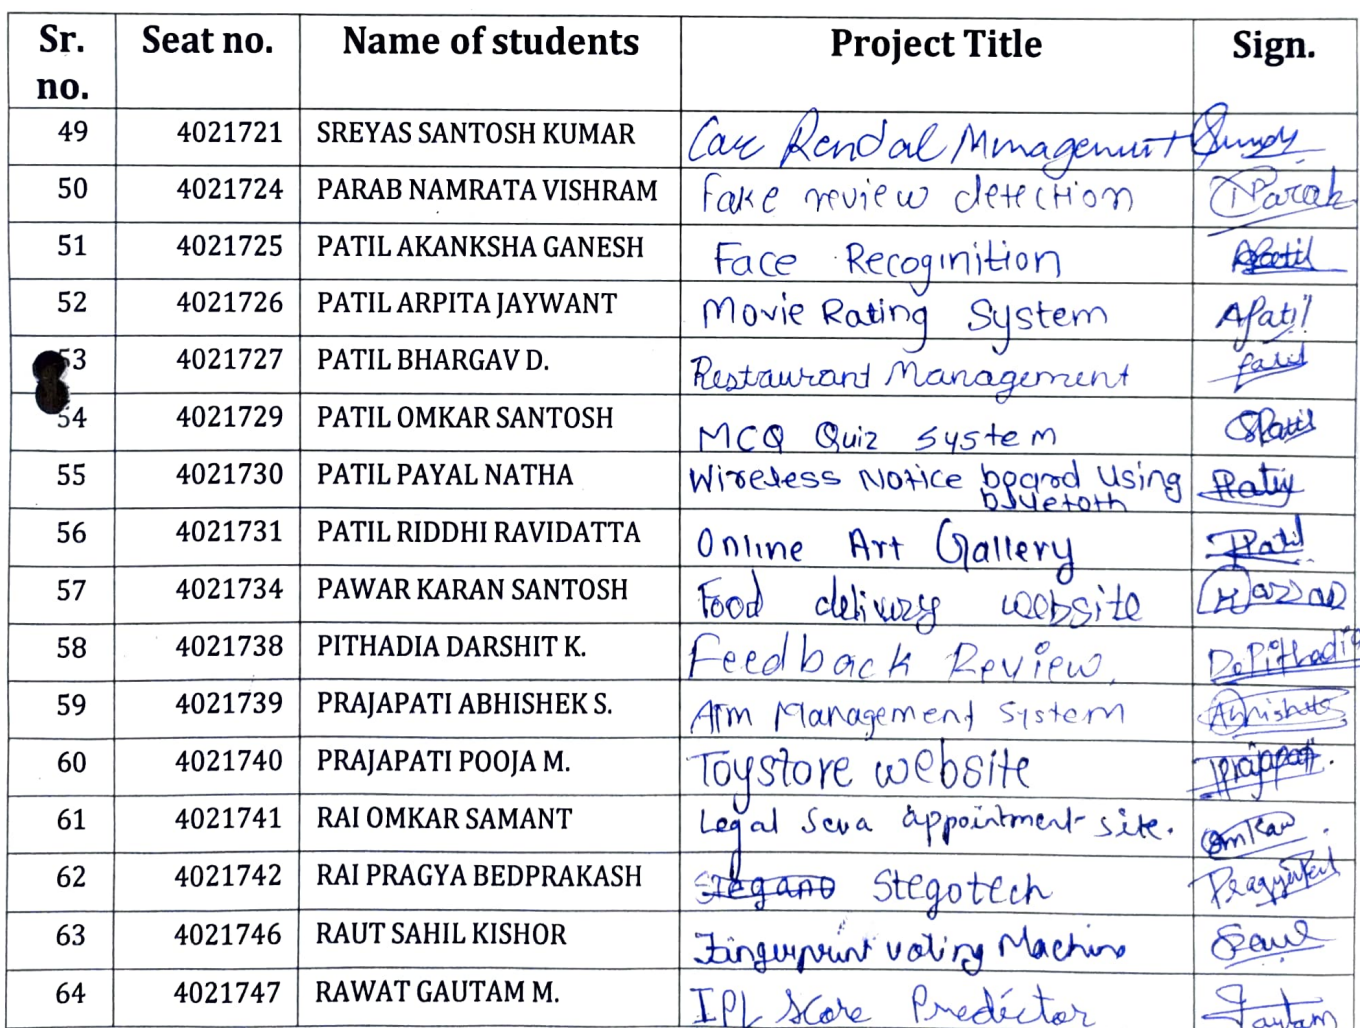 Sr. no. Seat no. Name of students Project Title Sign.
49 4021721 SREYAS SANTOSH KUMAR Car Rendal Mmagemnt
50 4021724 PARAB NAMRATA VISHRAM Fake review detection Parab
51 4021725 PATIL AKANKSHA GANESH Face Recoginition Apatil
52 4021726 PATIL ARPITA JAYWANT Movie Rating System APatil
53 4021727 PATIL BHARGAV D. Restaurant Management Patil
54 4021729 PATIL OMKAR SANTOSH MCQ Quiz System OPatil
55 4021730 PATIL PAYAL NATHA Wireless Notice board Using bluetoth
56 4021731 PATIL RIDDHI RAVIDATTA Online Art Gallery Patil
57 4021734 PAWAR KARAN SANTOSH Food delivery website
58 4021738 PITHADIA DARSHIT K. Feedback Review. D.Pithadia
59 4021739 PRAJAPATI ABHISHEK S. ATm Management System Abhishek
60 4021740 PRAJAPATI POOJA M. Toystore website Prajapati.
61 4021741 RAI OMKAR SAMANT Legal Seva appointment site. Omkar
62 4021742 RAI PRAGYA BEDPRAKASH Stegano Stegotech
63 4021746 RAUT SAHIL KISHOR Fingerprint voting Machine
64 4021747 RAWAT GAUTAM M. IPL Score Predictor Gautam